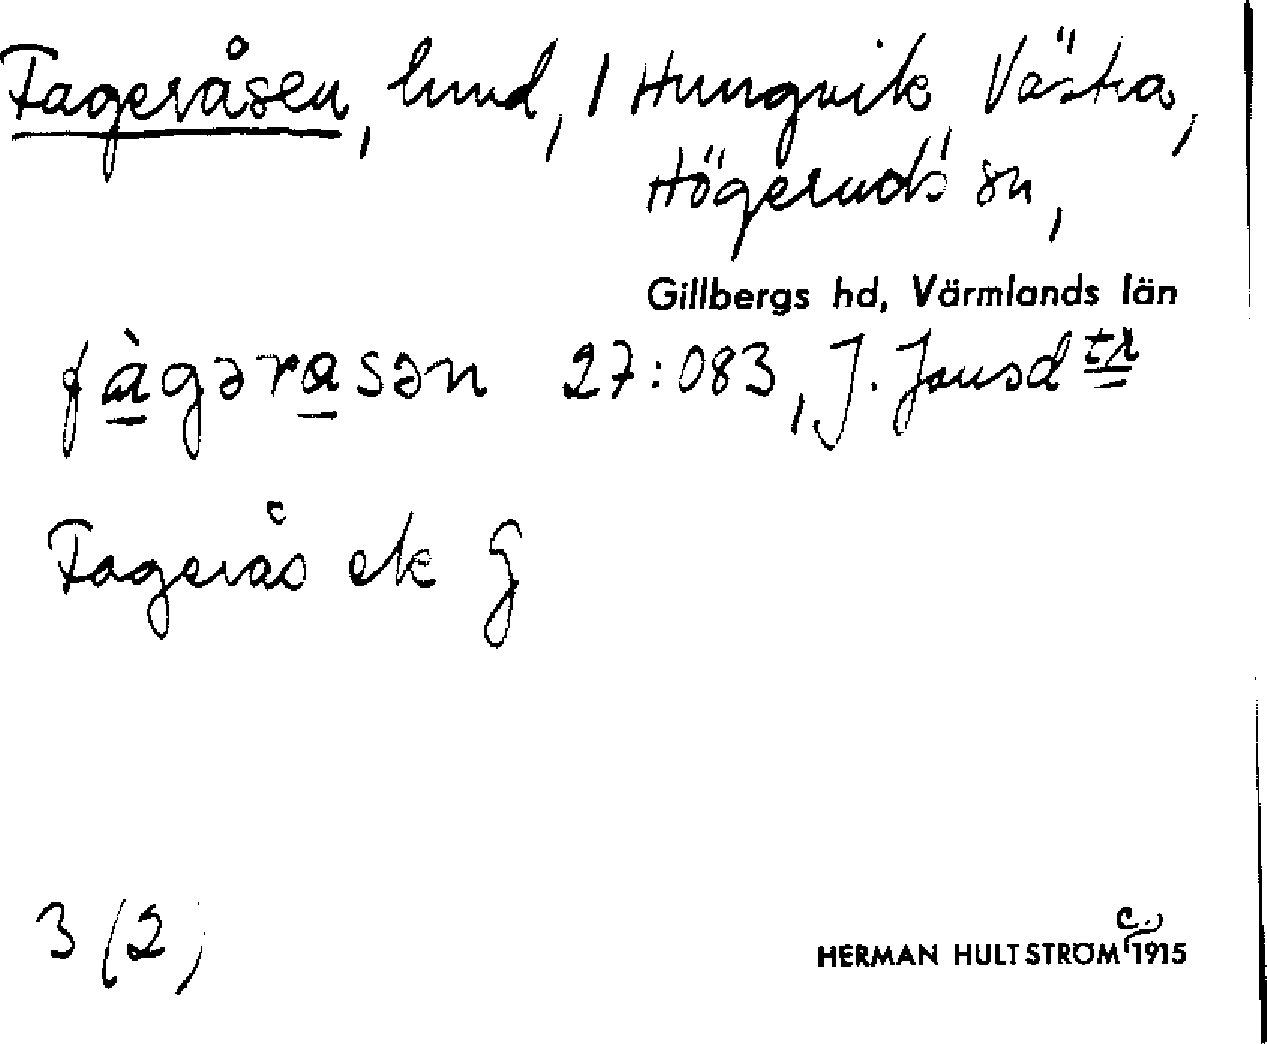 Fageråsen, lund, 1 Hungvik Västra,
Högeruds sn,
Gillbergs hd, Värmlands län
fàgərasən 27:083, J. Jansdtr
Fagerås ek G
3 (2)
HERMAN HULTSTRÖM c. 1915